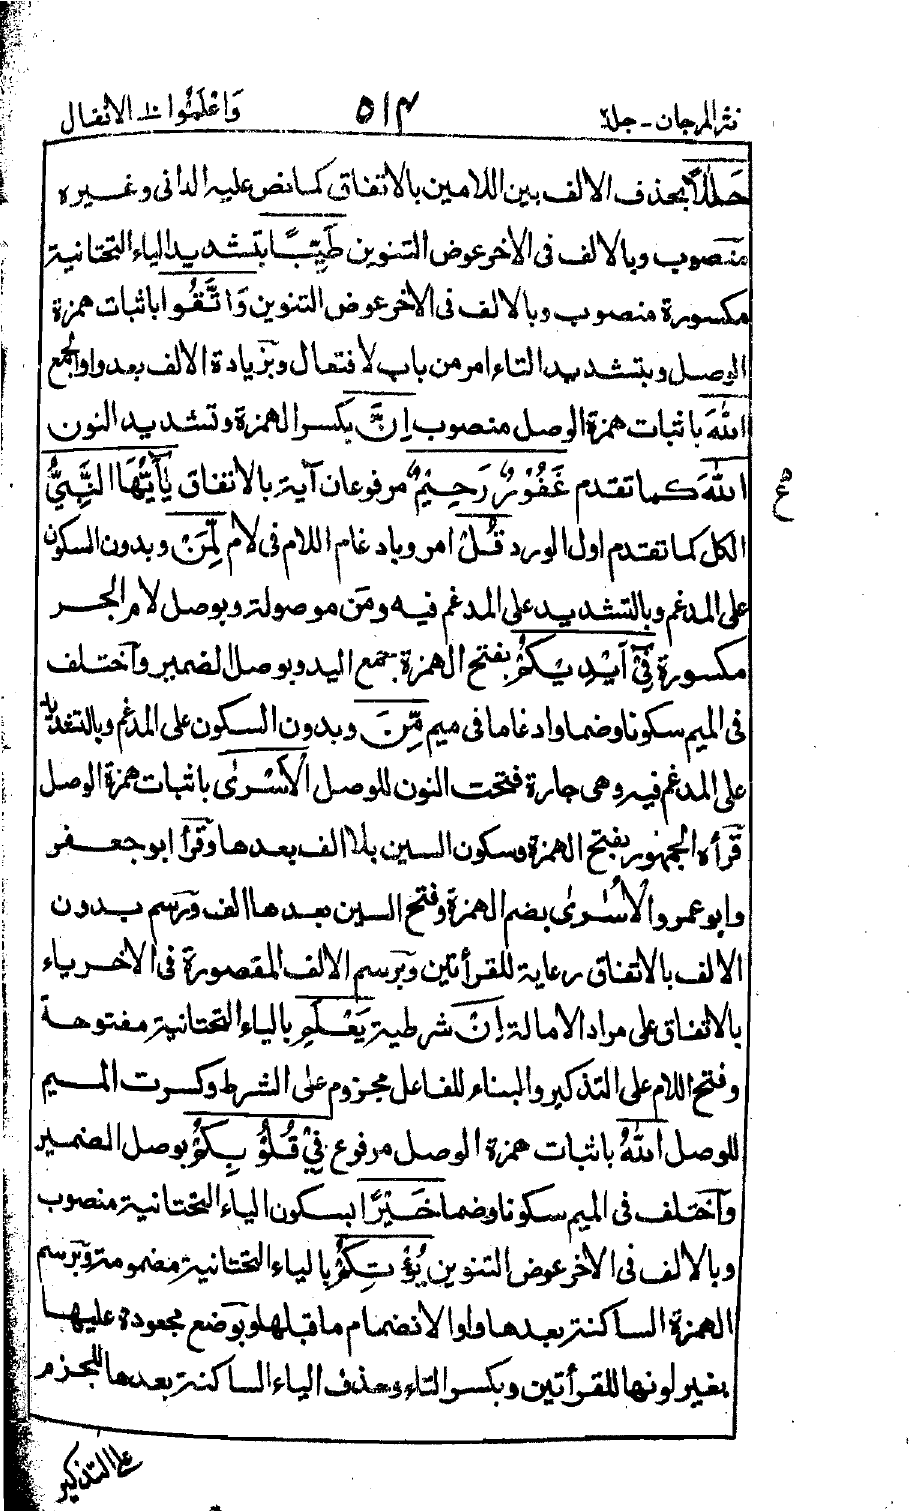 نثر المرجان - جلد ٢
٥١٣
وَاعْلَمُوٓا ١٠ الانفال
حَلٰلًا بحذف الالف بين اللامين بالاتفاق كما نص عليه الدانى وغيره
منصوب وبالالف فى الاخر عوض التنوين طَيِّبًا بتشديد الياء التحتانية
مكسورة منصوب وبالالف فى الاخر عوض التنوين وَاتَّقُوا باثبات همزة
الوصل وبتشديد التاء امر من باب لافتعال وبزيادة الالف بعد واو الجمع
اللهَ باثبات همزة الوصل منصوب اِنَّ بكسر الهمزة وتشديد النون
اللهَ كما تقدم غَفُوْرٌ رَحِيْمٌ مرفوعان آية بالاتفاق يٰٓاَيُّهَا النَّبِيُّ
ع
الكل كما تقدم اول الورد قُلْ امر وبادغام اللام فى لام لِّمَنْ وبدون السكون
على المدغم وبالتشديد على المدغم فيه ومَن موصولة وبوصل لام الجر
مكسورة فِيْٓ اَيْدِيْكُمْ بفتح الهمزة جمع اليد وبوصل الضمير واختلف
فى الميم سكونا وضما وادغاما فى ميم مِّنَ وبدون السكون على المدغم وبالتشديد
على المدغم فيه وهى جارة فتحت النون للوصل الْاَسْرٰى باثبات همزة الوصل
قرأه الجمهور بفتح الهمزة وسكون السين بلا الف بعدها وقرأ ابو جعفر
وابو عمرو الْاُسٰرٰى بضم الهمزة وفتح السين بعدها الف ورسم بدون
الالف بالاتفاق رعاية للقرأتين وبرسم الالف المقصورة فى الاخر ياء
بالاتفاق على مراد الامالة اِنْ شرطية يَعْلَمِ بالياء التحتانية مفتوحة
وفتح اللام على التذكير والبناء للفاعل مجزوم على الشرط وكسرت الميم
للوصل اللهُ باثبات همزة الوصل مرفوع فِيْ قُلُوْبِكُمْ بوصل الضمير
واختلف فى الميم سكونا وضما خَيْرًا بسكون الياء التحتانية منصوب
وبالالف فى الاخر عوض التنوين يُؤْتِكُمْ بالياء التحتانية مضمومة وبرسم
الهمزة الساكنة بعدها واوا لانضمام ما قبلها وبوضع مجعودة عليها
بغير لونها للقرأتين وبكسر التاء وحذف الياء الساكنة بعدها للجزم
على التذكير